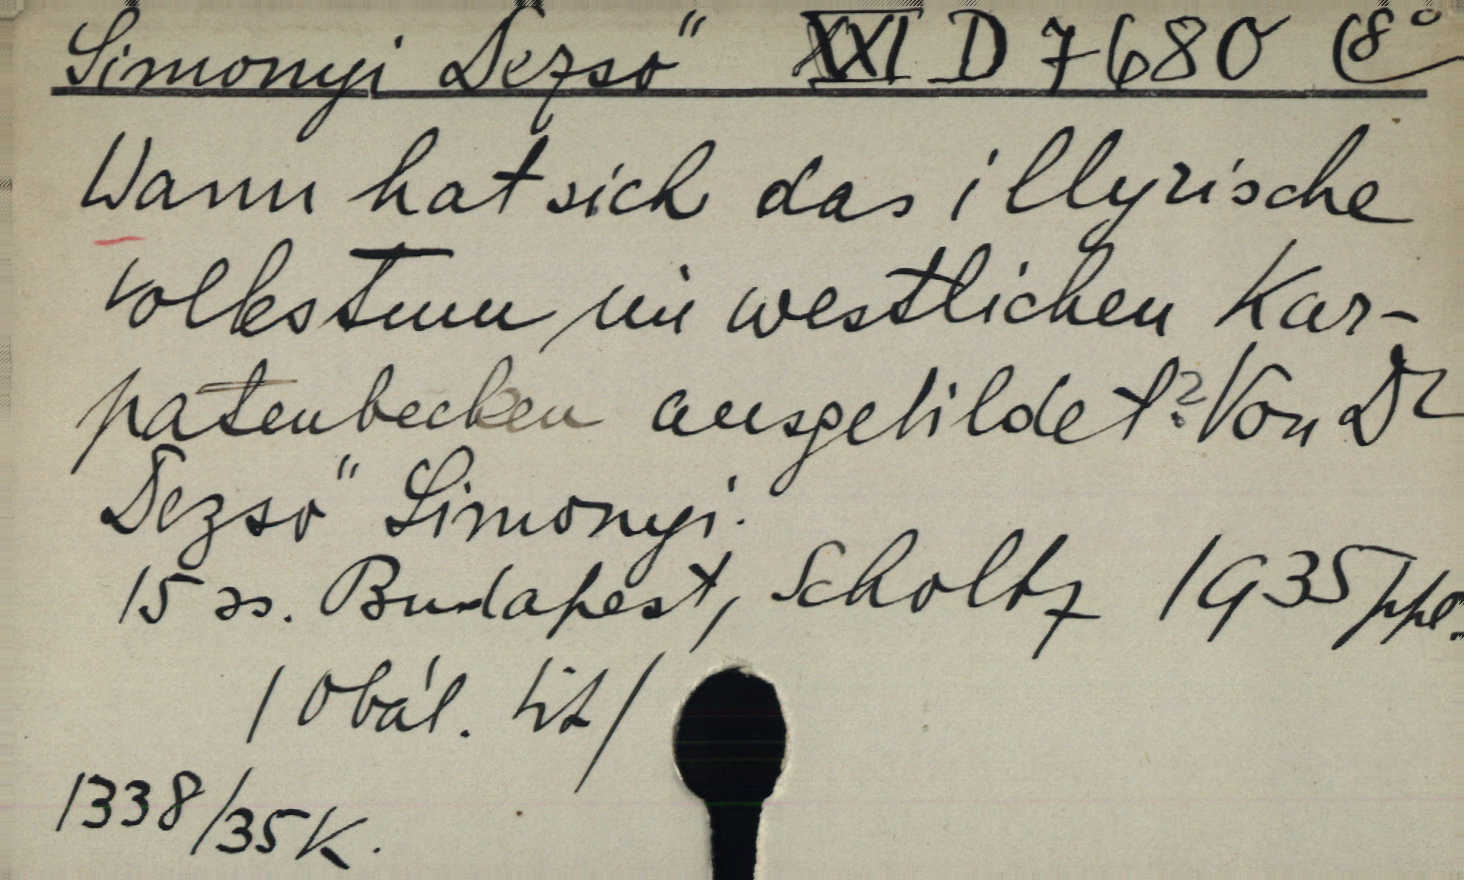 Simonyi Dezső XXI D 7680 (8°
Wann hat sich das illyrische
Volkstum im westlichen Kar-
patenbecken ausgebildet? Von Dr
Dezső Simonyi.
15 ss. Budapest, Scholtz 1935
/ Obál. tit/
1338/35K.